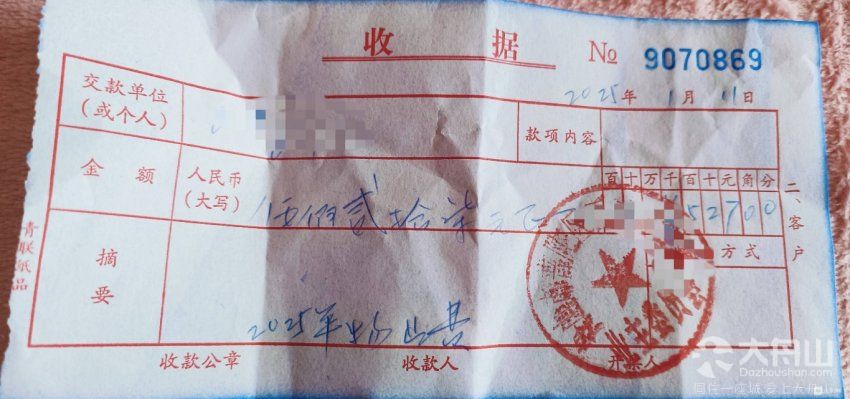 收 据 № 9070869
2025年 1月 11日
交款单位
(或个人)
款项内容
金 额
人民币
(大写)
伍佰贰拾柒元正
百十万千百十元角分
52700
二、客户
摘
要
方式
2025年物业费
青联纸品
业主委员会
收款公章 收款人 开票人
大舟山
Dazhoushan.com
同在一座城 爱上大舟山